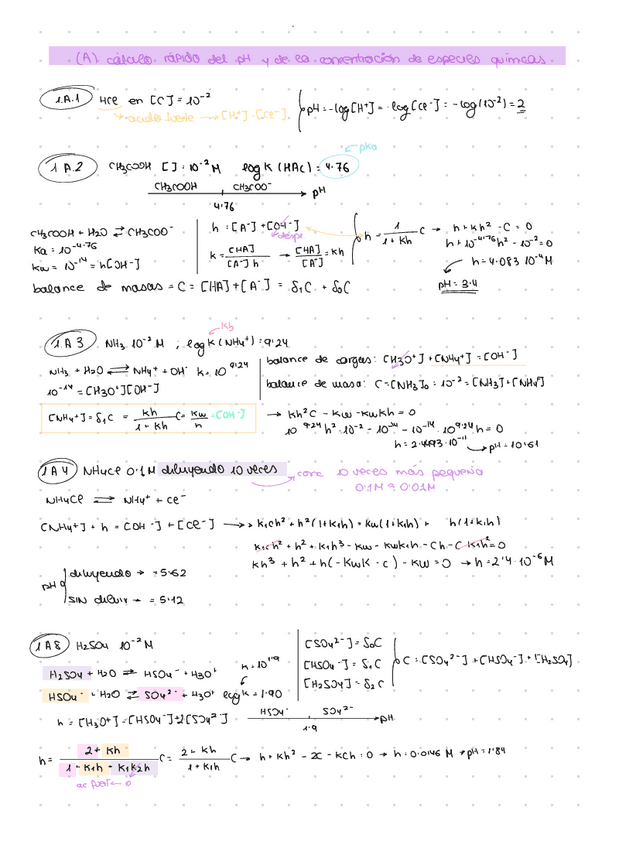 (A) cálculo rápido del pH y de la concentración de especies químicas.
1.A.1 HCl en [C] = 10⁻²
→ácido fuerte → [H⁺] = [Cl⁻].
pH = -log[H⁺] = -log[Cl⁻] = -log(10⁻²) = 2
pKa
1.A.2 CH₃COOH [ ] = 10⁻² M log K (HAc) = 4.76
CH₃COOH CH₃COO⁻ → pH
4.76
CH₃COOH + H₂O ⇄ CH₃COO⁻
Ka = 10⁻⁴·⁷⁶
Kw = 10⁻¹⁴ = h[OH⁻]
h = [A⁻] + [OH⁻]
K = [HA]/[A⁻]h → [HA]/[A⁻] = Kh
h = 1/(1+Kh) C → h + Kh² - C = 0
h + 10⁴·⁷⁶h² - 10⁻² = 0
h = 4.083 10⁻⁴ M
pH = 3.4
balance de masas = C = [HA] + [A⁻] = δ₁C + δ₀C
Kb
1.A 3 NH₃ 10⁻² M ; log K (NH₄⁺) = 9.24
NH₃ + H₂O ⇄ NH₄⁺ + OH⁻ K = 10⁹·²⁴
10⁻¹⁴ = [H₃O⁺][OH⁻]
balance de cargas: [H₃O⁺] + [NH₄⁺] = [OH⁻]
balance de masa: C = [NH₃]₀ = 10⁻² = [NH₃] + [NH₄⁺]
[NH₄⁺] = δ₁C = Kh/(1+Kh) C = Kw/h = [OH⁻]
→ Kh²C - Kw - KwKh = 0
10⁹·²⁴ h² 10⁻² - 10⁻¹⁴ - 10⁻¹⁴ 10⁹·²⁴ h = 0
→ pH = 10.61
1A 4 NH₄Cl 0.1 M diluyendo 10 veces
→ conc 10 veces más pequeña
0.1M a 0.01M
NH₄Cl ⇄ NH₄⁺ + Cl⁻
[NH₄⁺] + h = [OH⁻] + [Cl⁻] → K₁ch² + h²(1+K₁h) = Kw(1+K₁h) + h(1+K₁h)
K₁ch² + h² + K₁h³ - Kw - KwK₁h - Ch - C K₁h² = 0
Kh³ + h² + h(-KwK - C) - Kw = 0 → h = 2'4 · 10⁻⁶ M
pH
diluyendo → = 5.62
SIN diluir → = 5.12
1A8 H₂SO₄ 10⁻² M
H₂SO₄ + H₂O ⇄ HSO₄⁻ + H₃O⁺
HSO₄⁻ + H₂O ⇄ SO₄²⁻ + H₃O⁺ log K = 1.90
K = 10¹·⁹
[SO₄²⁻] = δ₀C
[HSO₄⁻] = δ₁C
[H₂SO₄] = δ₂C
C = [SO₄²⁻] + [HSO₄⁻] + [H₂SO₄]
h = [H₃O⁺] = [HSO₄⁻] + 2[SO₄²⁻]
HSO₄⁻ SO₄²⁻ → pH
1.9
h = (2 + Kh)/(1 - K₁h - K₁K₂h) C = (2 + Kh)/(1 + K₁h) C → h + Kh² - 2C - KCh = 0 → h = 0.0146 M → pH = 1'84